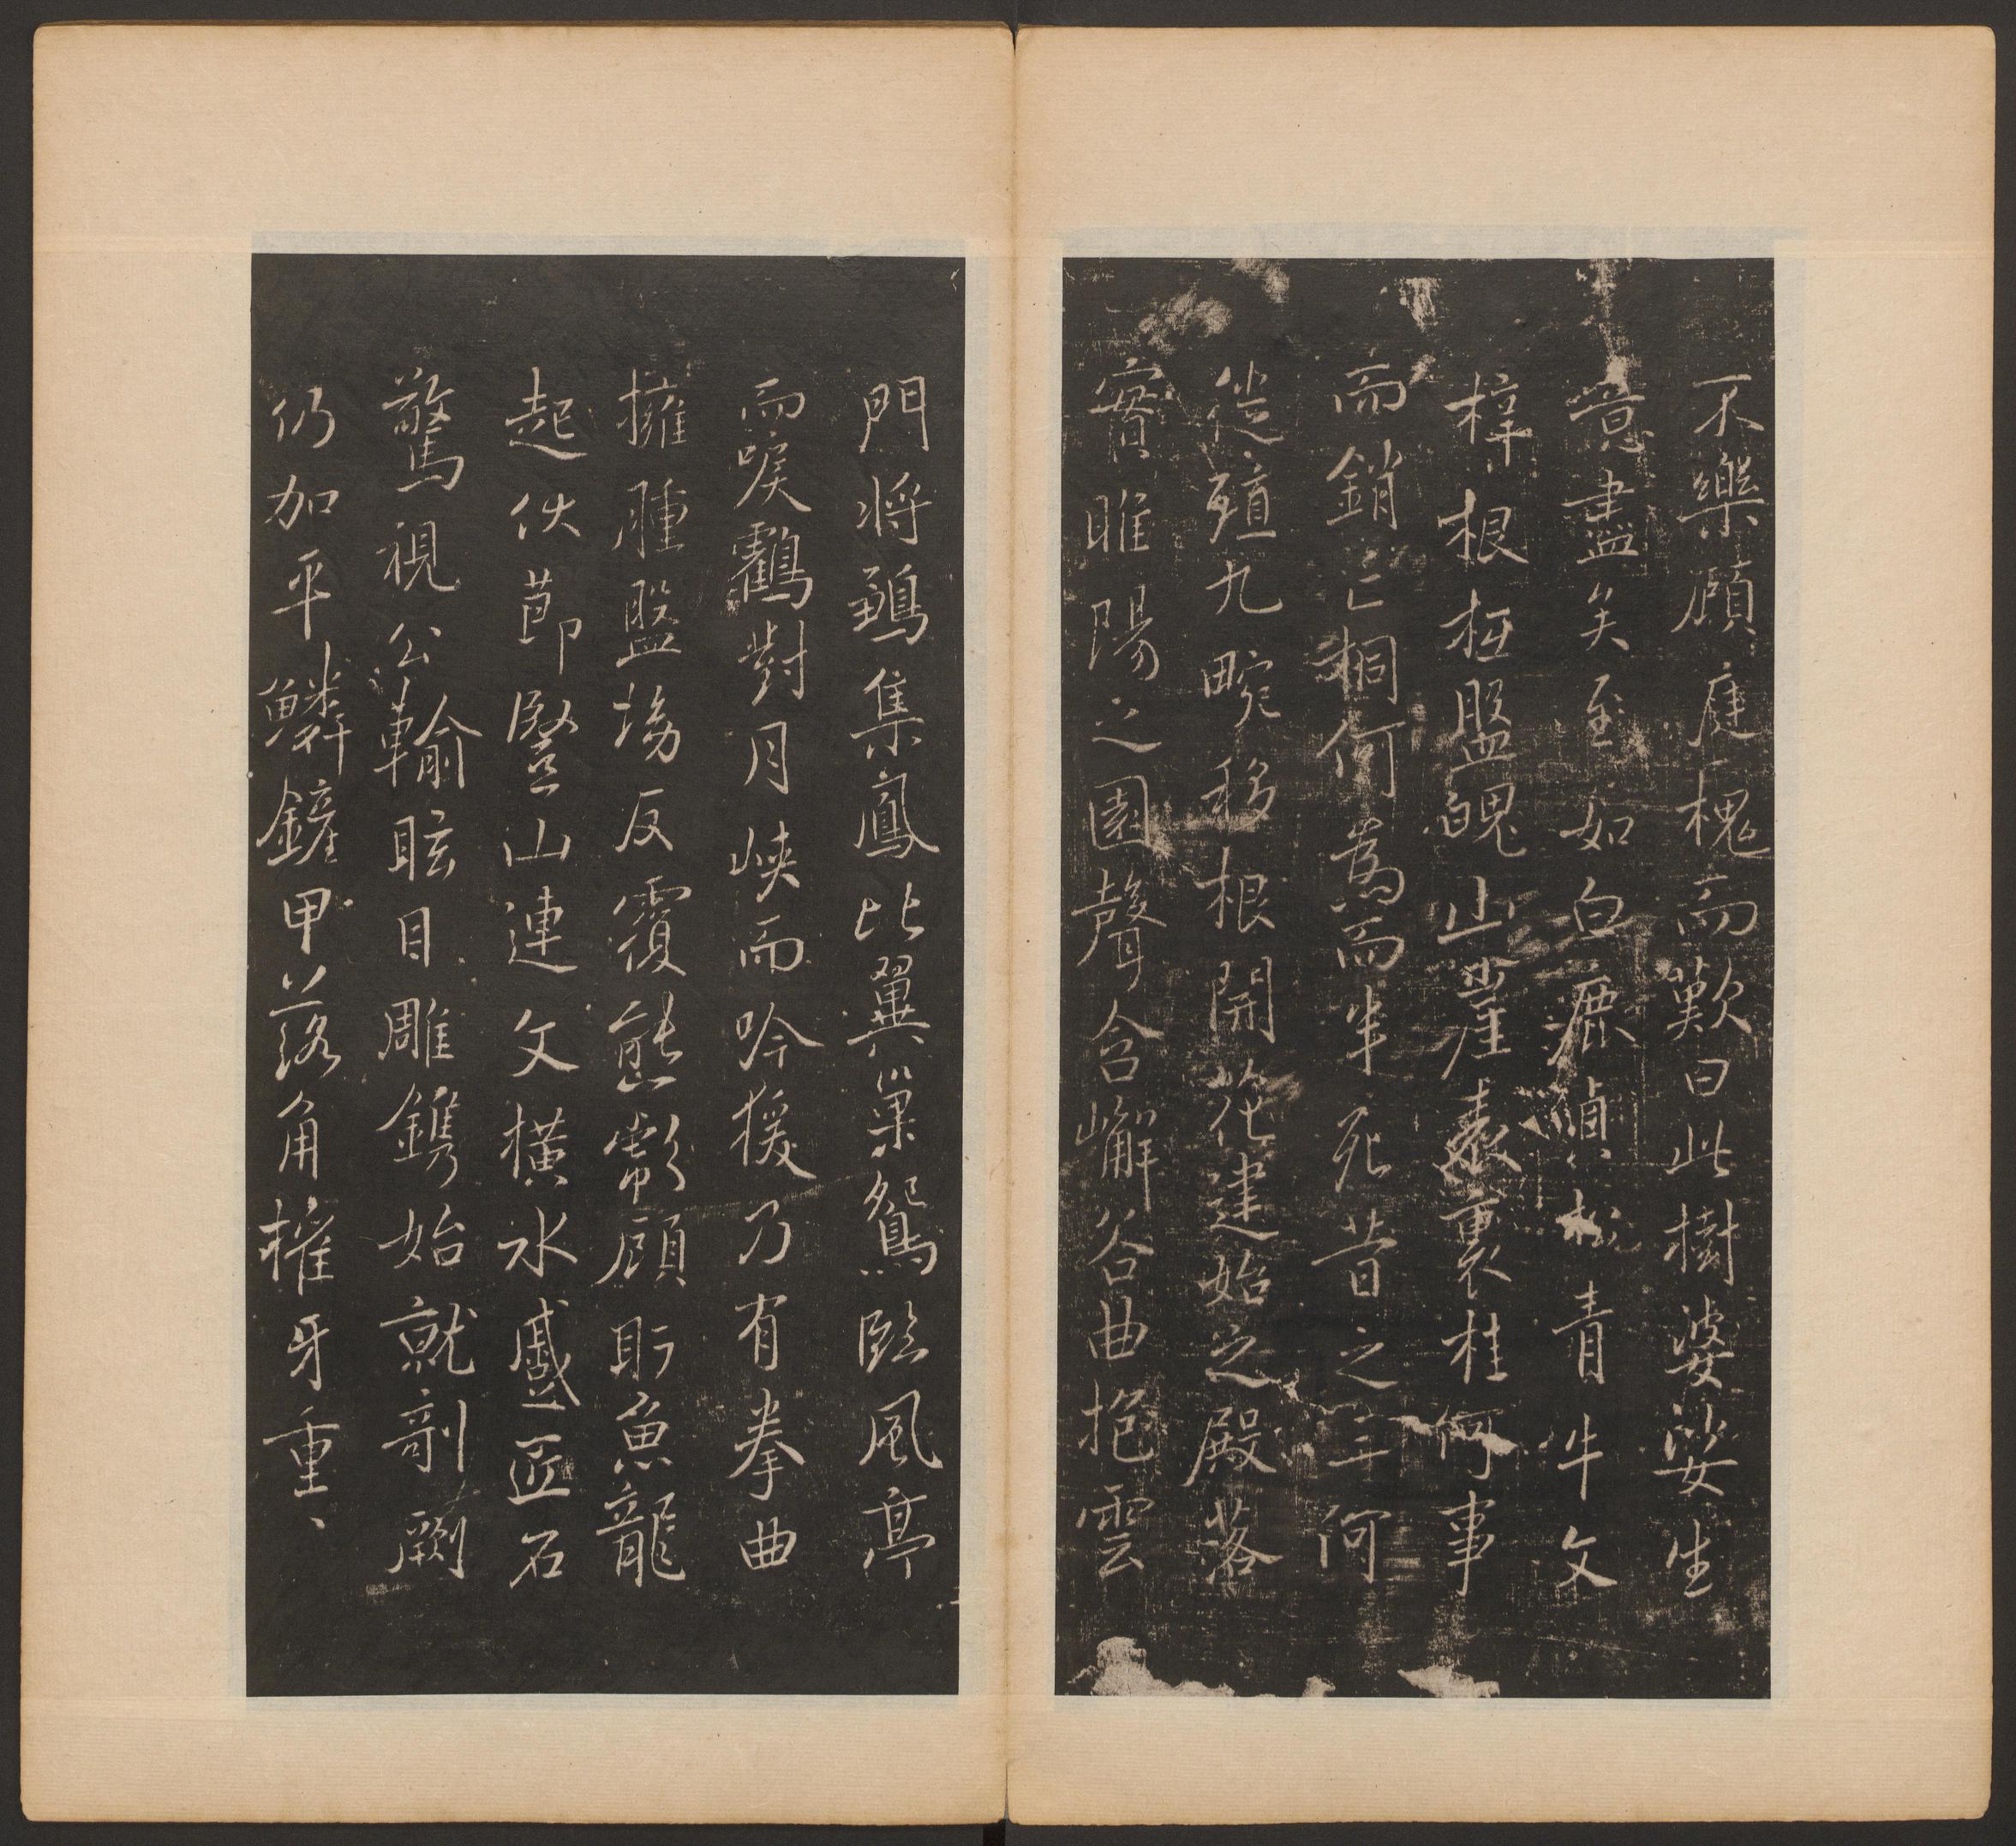 不樂顧庭槐而歎曰此樹婆娑生
意盡矣至如白鹿貞松青牛文
梓根柢盤魄山崖表裏桂何事
而銷亡桐何為而半死昔之三河
徙殖九畹移根開花建始之殿落
實睢陽之園聲含嶰谷曲抱雲
門將鶵集鳳比翼巢鴛臨風亭
而唳鶴對月峽而吟猨乃有拳曲
擁腫盤坳反覆熊彪顧盼魚龍
起伏莭豎山連文橫水蹙匠石
驚視公輸眩目雕鐫始就剞劂
仍加平鱗鏟甲落角摧牙重〻